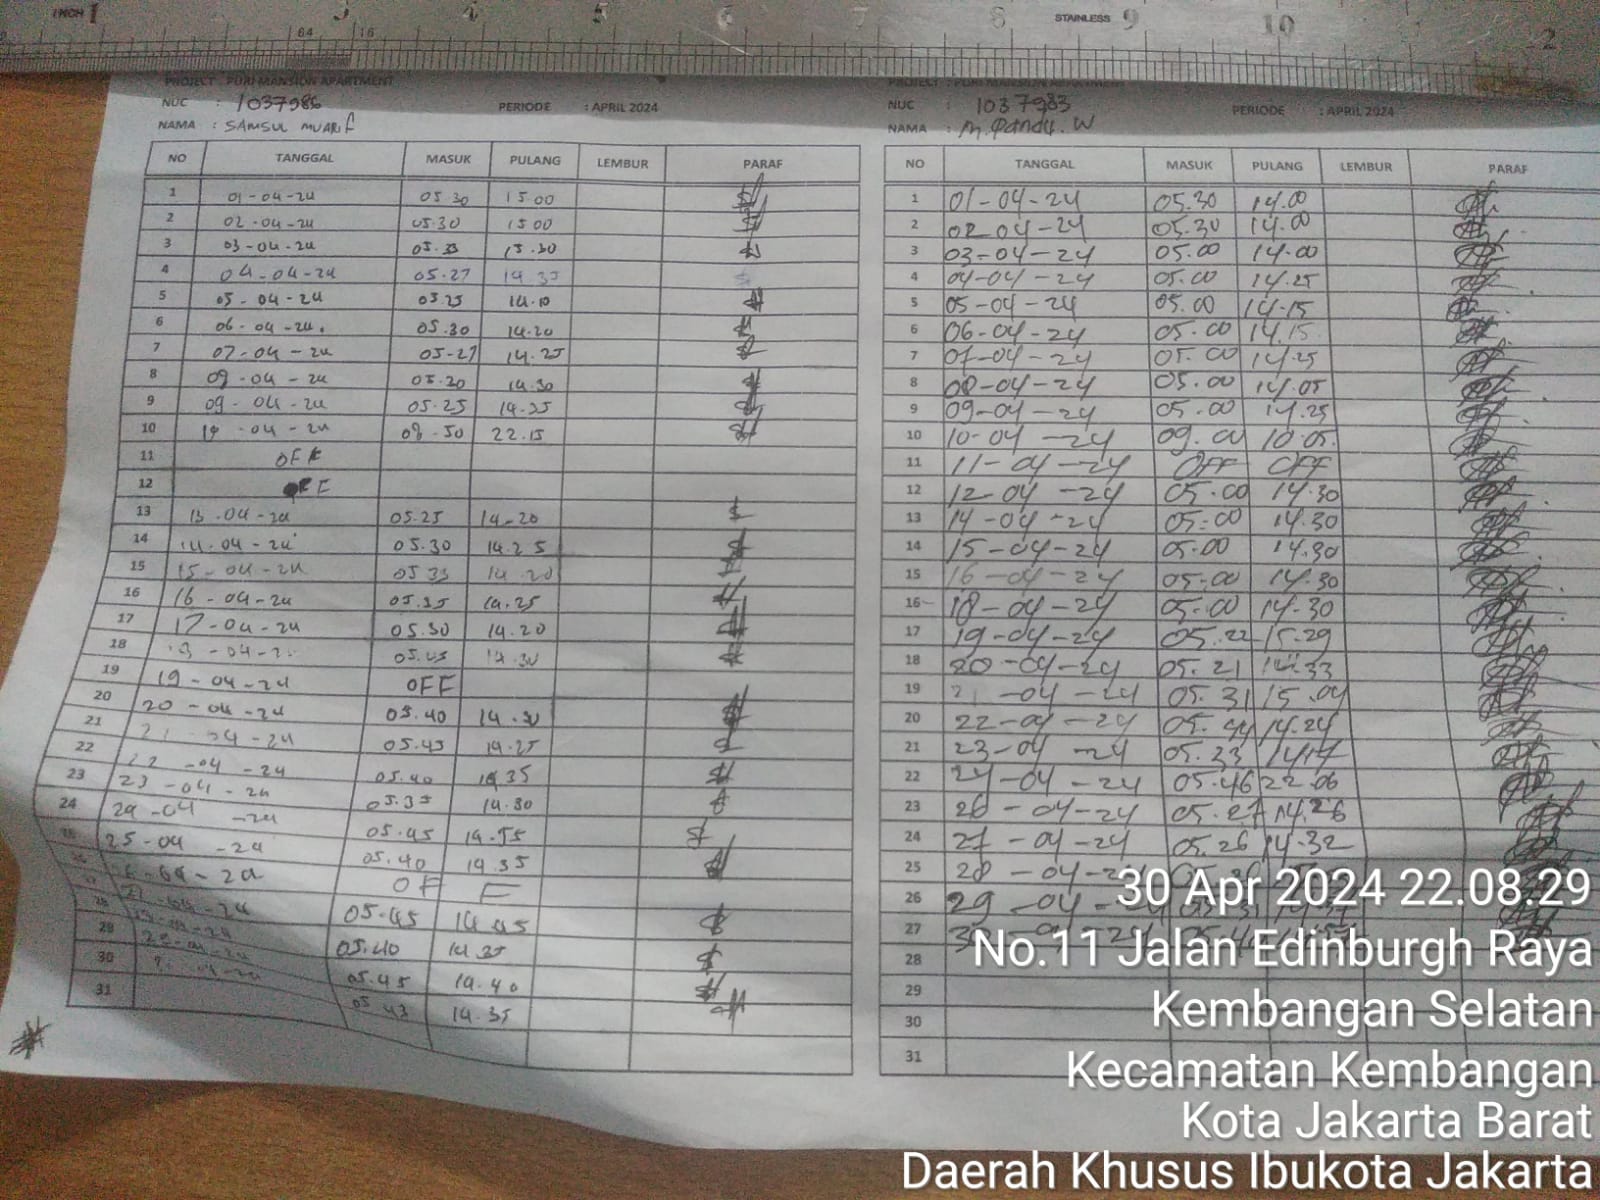 INCH 1 3 4 5 6 7 8 STAINLESS 9 10
64 16 2
PROJECT : PURI MANSION APARTMENT
NUC : 1037986 PERIODE : APRIL 2024
NAMA : SAMSUL MUARIF
NO TANGGAL MASUK PULANG LEMBUR PARAF
1 01-04-24 05.30 15.00
2 02-04-24 05.30 15.00
3 03-04-24 05.33 15.30
4 04-04-24 05.27 14.35
5 05-04-24 05.25 14.10
6 06-04-24. 05.30 14.20
7 07-04-24 05-27 14.25
8 09-04-24 05.20 14.30
9 09-04-24 05.25 14.35
10 -04-24 08.50 22.15
11 OFF
12 OFF
13 13.04-24 05.25 14-20
14 14-04-24 05.30 14.25
15 15-04-24 05 33 14.20
16 16-04-24 05.35 14.25
17 17-04-24 05.30 14.20
18 -04-2 14.30
19 19-04-24 OFF
20 20-04-24 05.40 14.30
21 21-04-24 05.45 14.25
22 22-04-24 05.40 14.35
23 23-04-24 05.35 14.30
24 24-04-24 05.45 14.55
25 25-04-24 05.40 14.35
OFF
05.45 14.45
28 05.40 14.35
29 05.45 14.40
30 05 43 14.35
31
PROJECT : PURI MANSION APARTMENT
NUC : 1037983 PERIODE : APRIL 2024
NAMA : M. Pandu. W
NO TANGGAL MASUK PULANG LEMBUR PARAF
1 01-04-24 05.30 14.00
2 02 04-24 05.30 14.00
3 03-04-24 05.00 14.00
4 04-04-24 05.00 14.25
5 05-04-24 05.00 14.15
6 06-04-24 05.00 14.15
7 07-04-24 05.00 14.25
8 08-04-24 05.00 14.05
9 09-04-24 05.00 14.25
10 10-04-24 09.00 10.05
11 11-04-24 OFF OFF
12 12-04-24 05.00 14.30
13 14-04-24 05.00 14.30
14 15-04-24 05.00 14.30
15 16-04-24 05.00 14.30
16 18-04-24 05.00 14.30
17 19-04-24 05.22 15.29
18 20-04-24 05.21 14.33
19 21-04-24 05.31 15.04
20 22-04-24 05.44 14.24
21 23-04-24 05.33 14.17
22 24-04-24 05.46 22.06
23 26-04-24 05.27 14.26
24 27-04-24 05.26 14.32
25 28-04-24
26 29-04-24
27 30-04-24
28
29
30
31
30 Apr 2024 22.08.29
No.11 Jalan Edinburgh Raya
Kembangan Selatan
Kecamatan Kembangan
Kota Jakarta Barat
Daerah Khusus Ibukota Jakarta